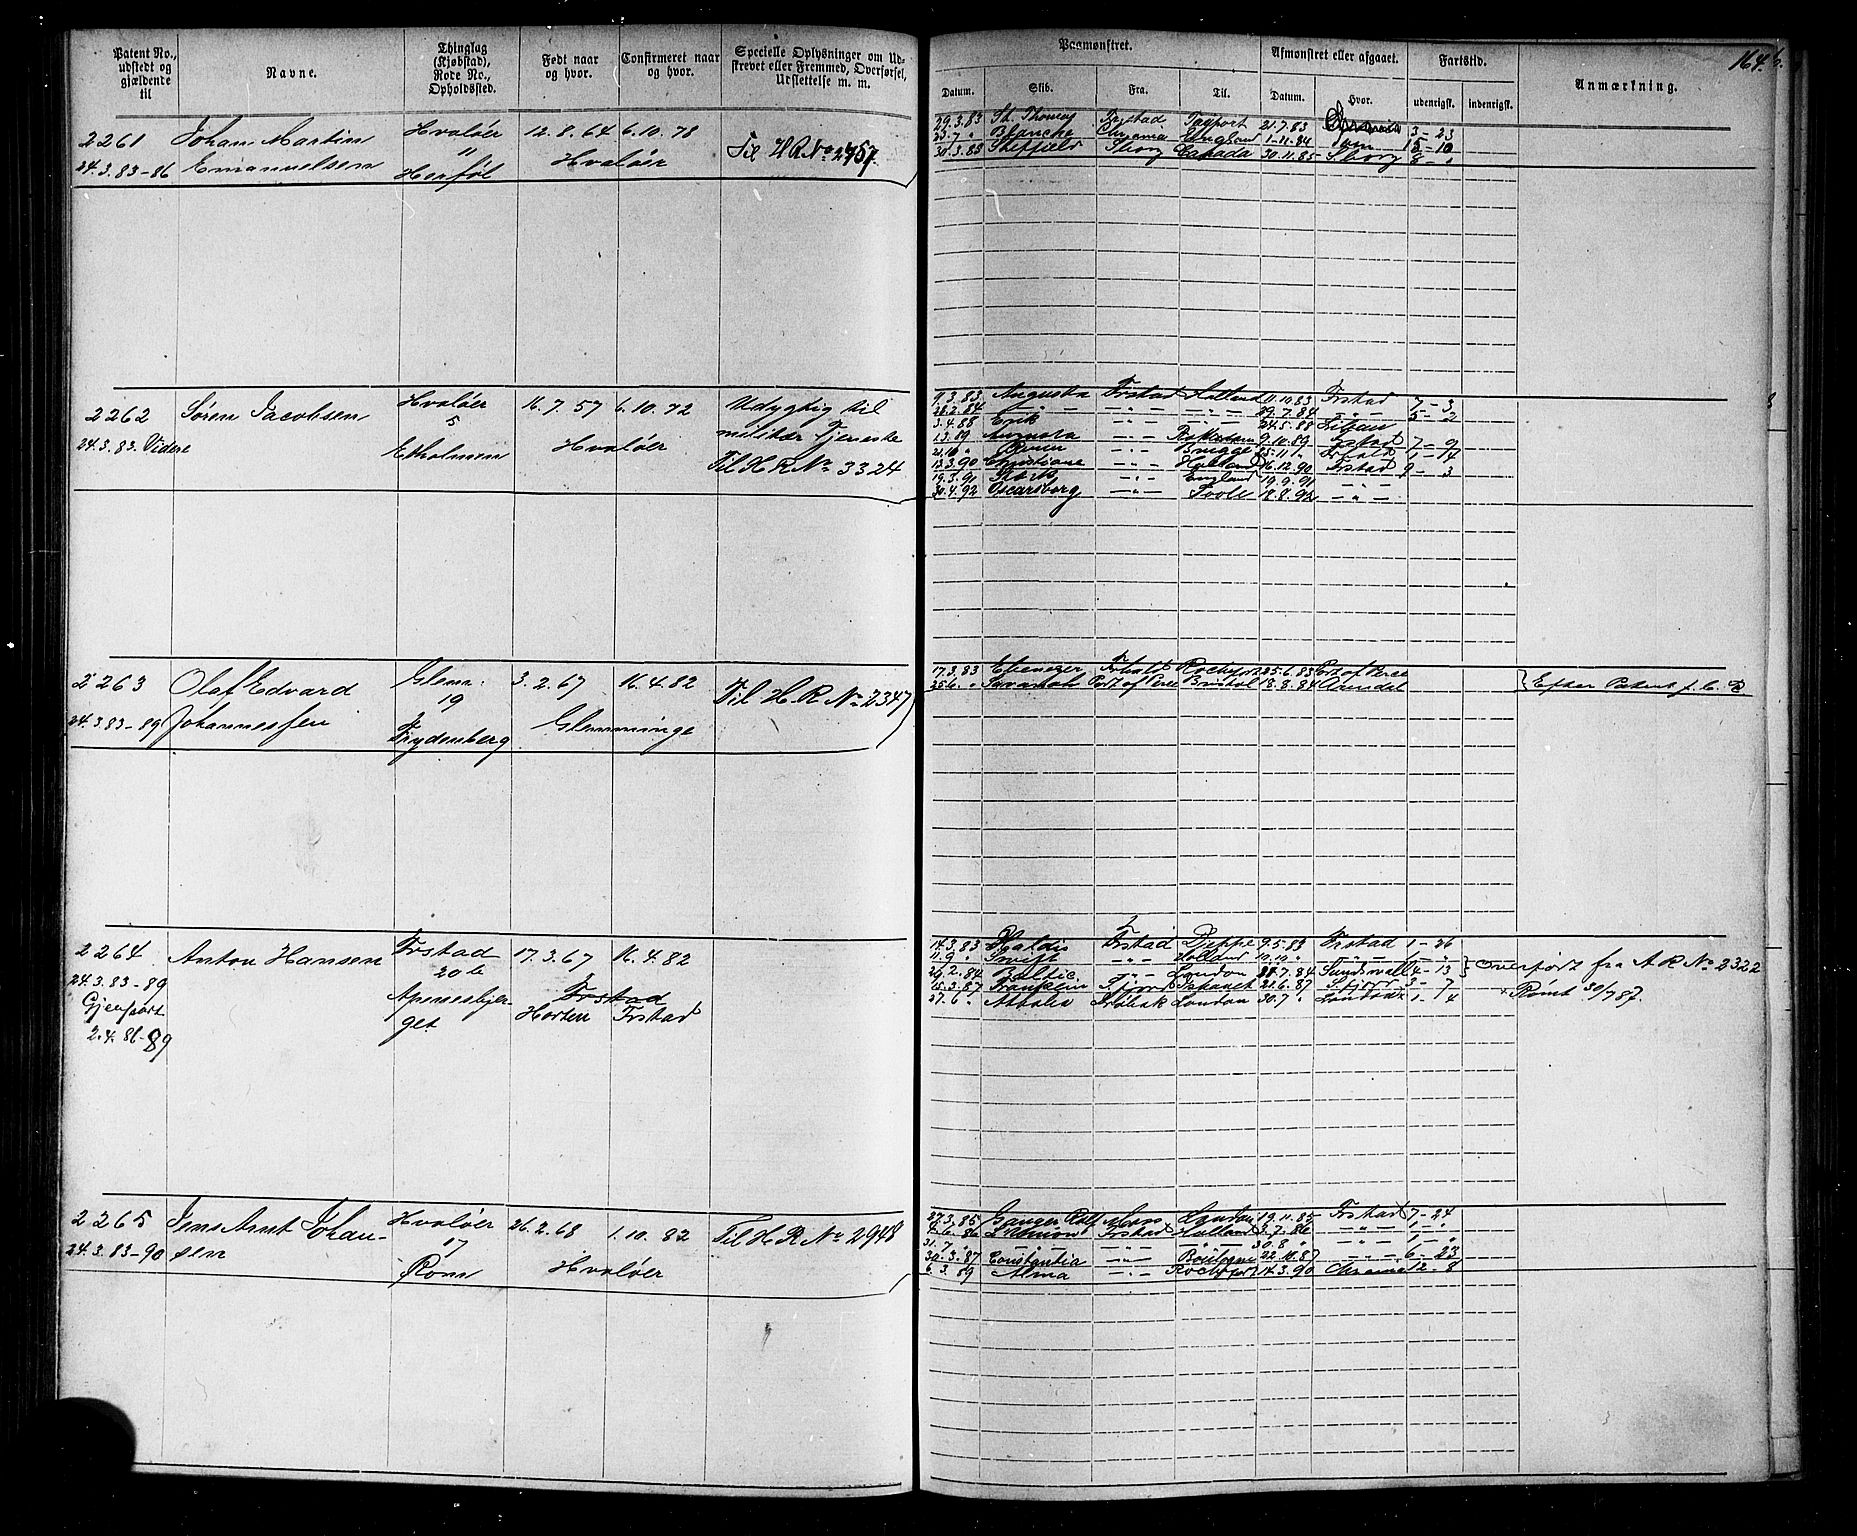 164
Patent No., udstedt og gjældende til
Navne.
Thinglag (Kjøbstad), Rode No., Opholdssted.
Født naar og hvor.
Confirmeret naar og hvor.
Specielle Oplysninger om Udskrevet eller Fremmed, Overførsel, Udslettelse m. m.
Paamønstret.
Afmønstret eller afgaaet.
Fartstid.
Anmærkning.
Datum. Skib. Fra. Til. Datum. Hvor. udenrigsk. indenrigsk.
2261 Johan Martin Hvaløer 12.8.64 6.10.78
" Til H R No 2457
24.3.83-86 Emanuelsen Herføl Hvaløer
29.3.83 St. Thomas 21.7.83 3-23
25.7 " Blanche Chrania England 1.11.84 15-10
30.3.85 Sheffield Sborg Canada 30.11.85 Sborg 8-"
2262 Søren Jacobsen Hvaløer 16.7.57 6.10.72 Udygtig til
5 militær Tjeneste
24.3.83. Videre Hvaløer
Til H R No 3324
9.3.83 Augusta Frstad Holland 11.10.83 Frstad 7-3
28.2.84 -"- -"- -"- 29.7.84 -"- 5-2
3.4.88 Erik -"- 24.5.88
1.3.89 -"- 9.10.89 7-9
-"- Brugge 1-14
13.3.90 Christiane -"- Holland 16.12.90 Frstad 9-3
19.3.91 -"- England 19.9.91
30.4.92 Oscarsborg -"- 18.8.92 -"-
2263 Olaf Edvard Glem. 3.2.67 16.4.82 Til H R No 2347
19
24.3.83-89 Johannessen Frydenberg Glemminge
17.3.83 Ebenezer Frhald Rochefort 25.6.83 Port of Peree
25.6. " Savanah Port of Peree Bristol 18.8.84 Arendal
Efter Patent
2264 Anton Hansen Frstad 17.3.67 16.4.82
20b
24.3.83-89
Gjenpart Frstad
2.4.86-89 get Horten Frstad
14.3.83 Frstad Dieppe 9.5.83 Frstad 1-26
11.9 " Swift -"- Holland 10.10 " -"- 1-"
29.2.84 Baltic -"- London 7.84 Sundsvall 4-13
15.3.87 Franklin 22.6.87 3-7
27.6 " Drøbak London 30.7 " London 1-4
Overført fra A R No 2322
Rømt 30/7 87.
2265 Jens Arnt Johan- Hvaløer 26.2.68 1.10.82 Til H R No 2948
17
24.3.83-90 sen Røm Hvaløer
27.3.85 Ganger Rolf Moss London 19.11.85 Frstad 7-24
Frstad Holland 3.7.86 -"- 1-"
31.7 -"- 30.8 " -"- 1-"
30.3.87 Constantia -"- Boulogne 22.10.87 -"- 6-23
6.3.89 Alma -"- Rochefort 14.3.90 Chrania 12-8